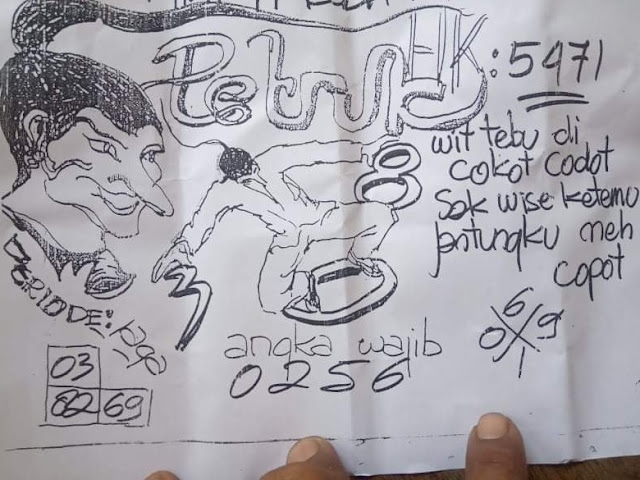 Petruk
HK: 5471
wit tebu di
cokot codot
Sok wise ketemu
jantungku meh
copot
8
3
PERIODE:
angka wajib
0256
03
82 69
6
0 9
1